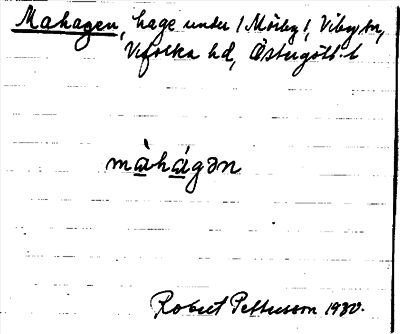 Mahagen, hage under 1 Mörby 1, Viby sn,
Vifolka hd, Östergötl. l
màhágən
Robert Pettersson 1930.